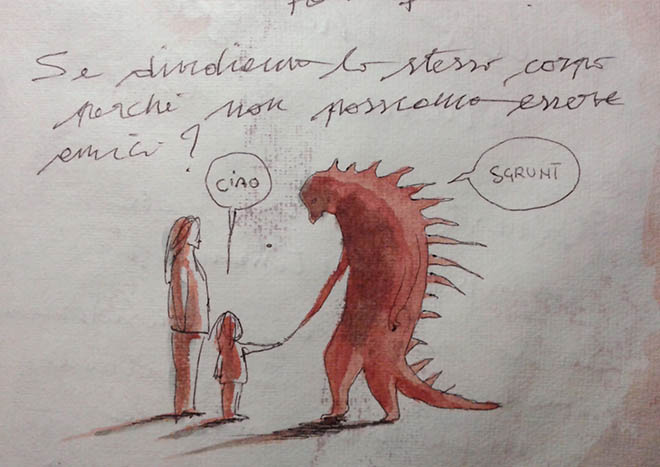 Se dividiamo lo stesso corpo
perché non possiamo essere
amici?
CIAO
SGRUNT